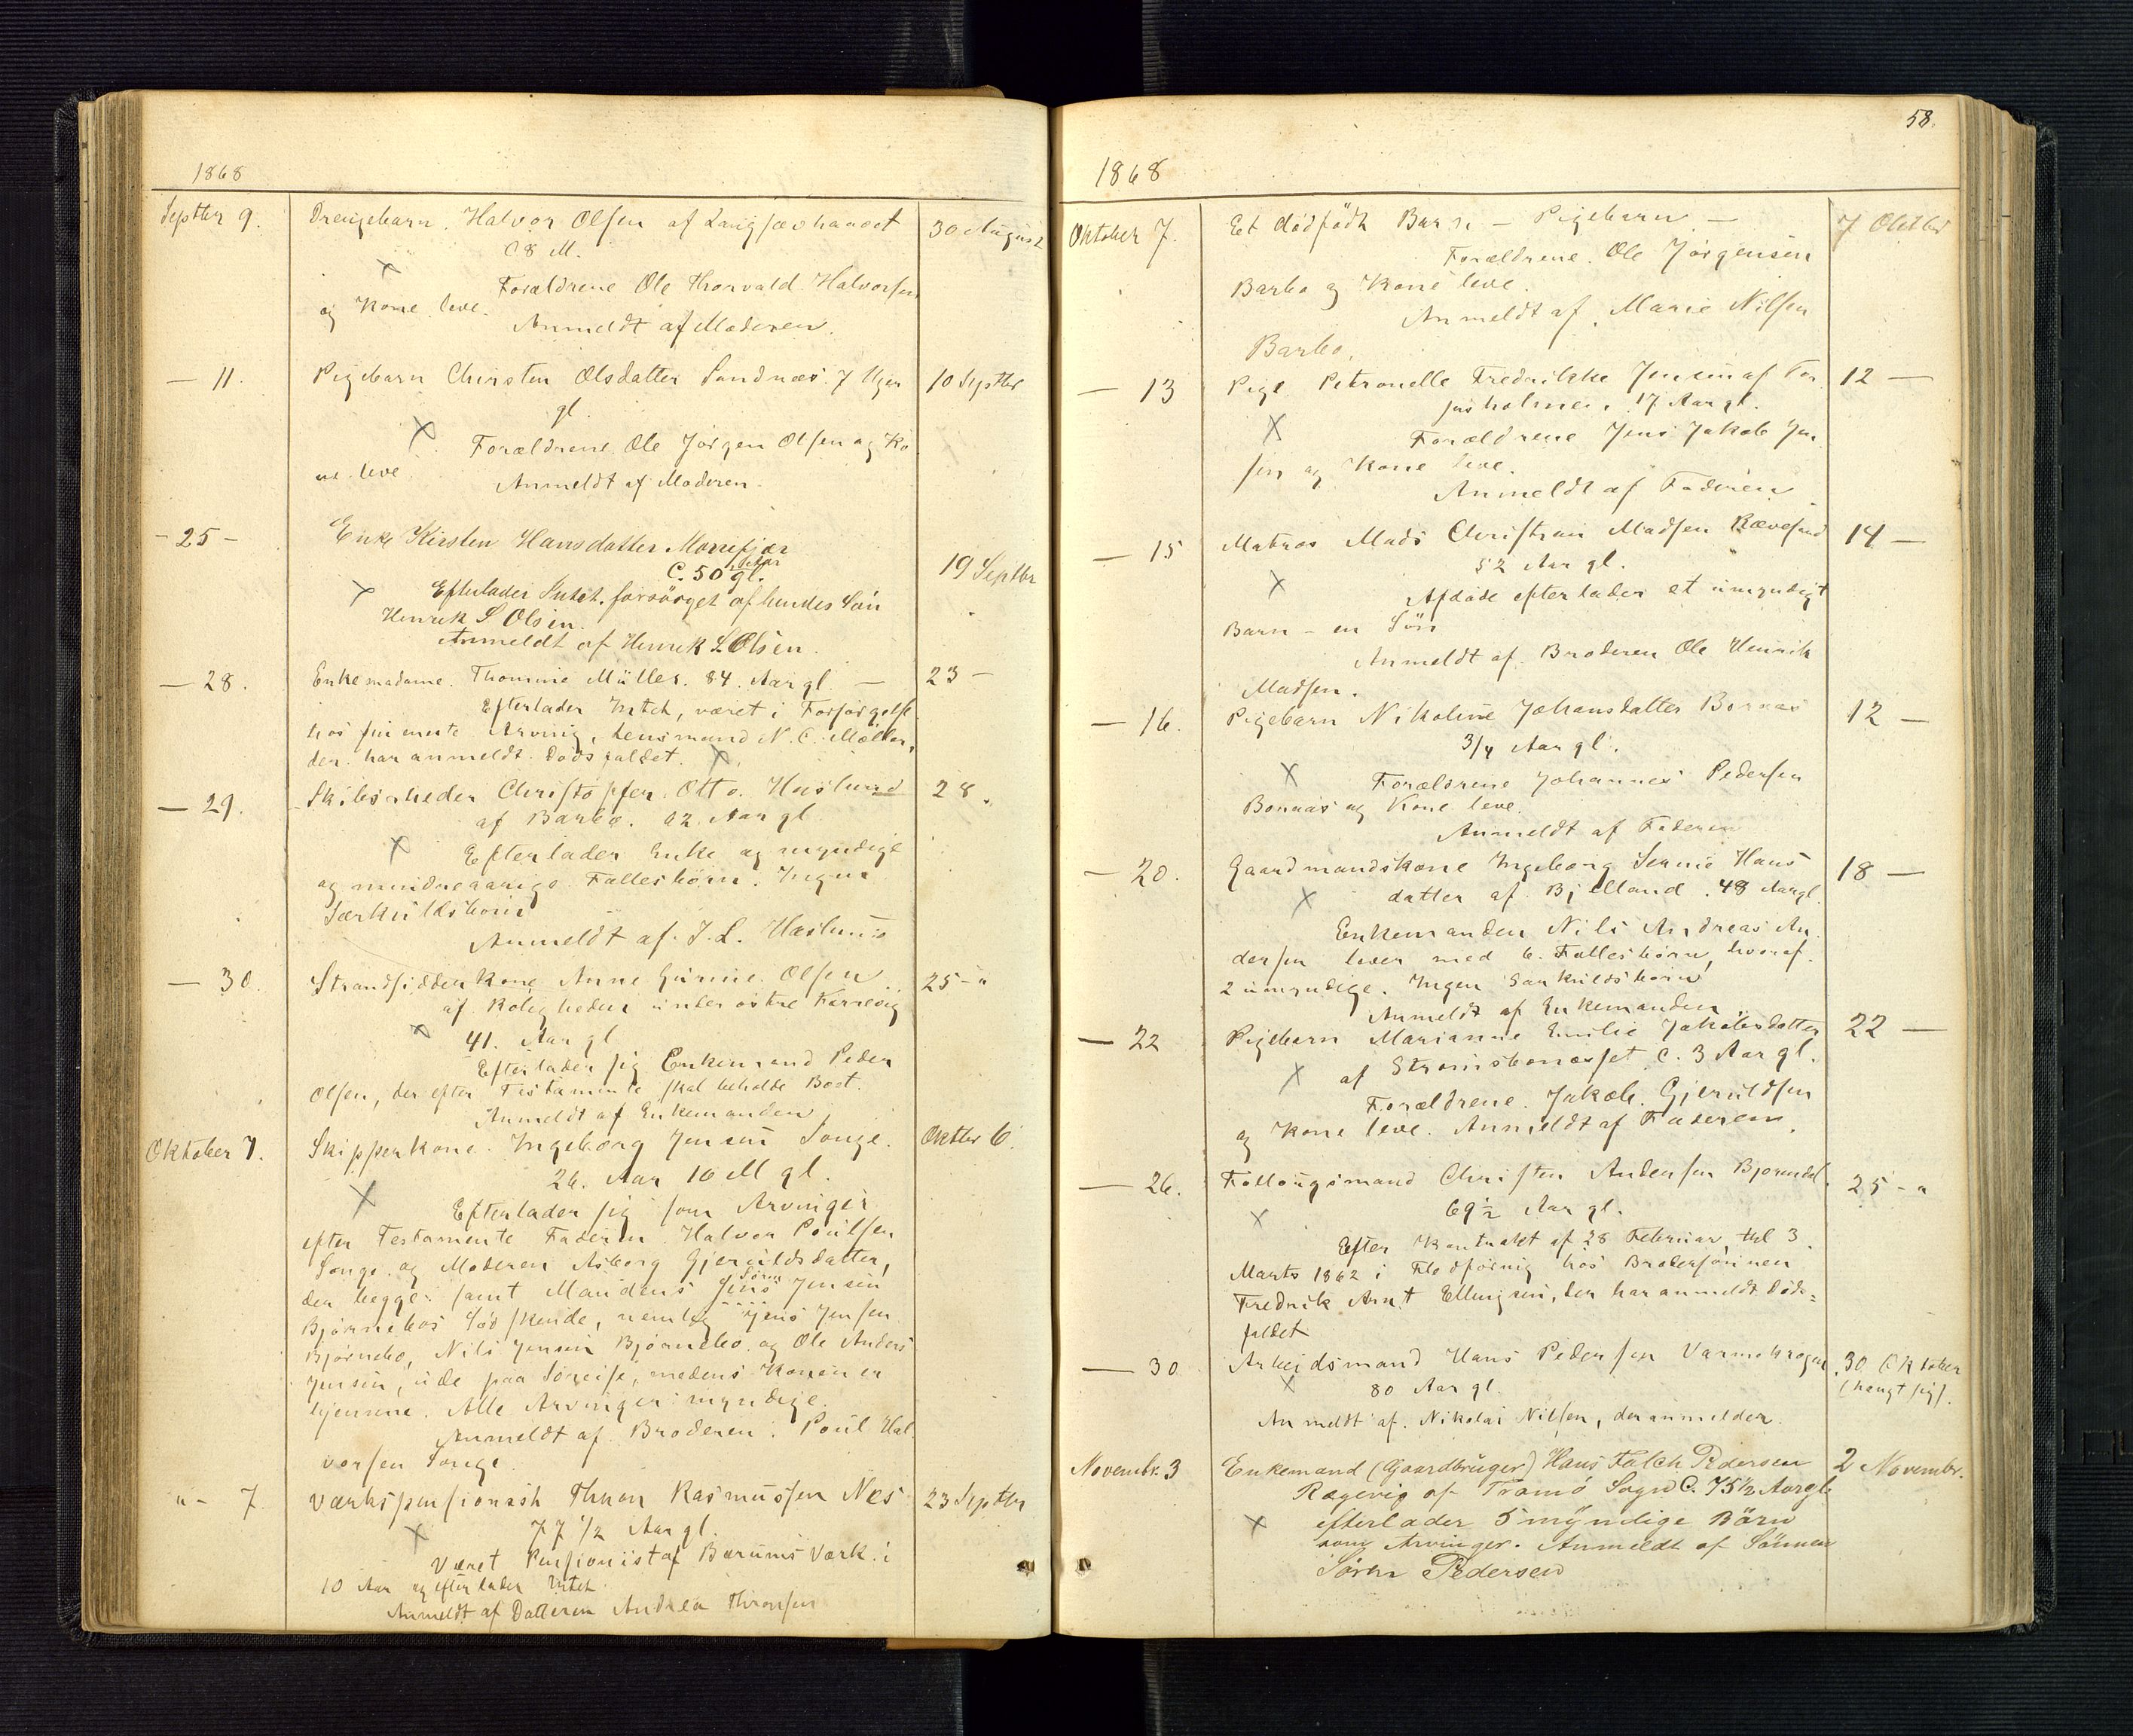 1868
Septbr 9. Drengebarn. Halvor Olsen af Langsævhanvet 30 August
C 8 M.
Forældrene Ole Thorvald Halvorsen
og Kone leve.
Anmeldt af Moderen.
— 11. Pigebarn Chirsten Olsdatter Sandnæs 7 Uger 10 Septbr
gl.
Forældrene Ole Jörgen Olsen og Ko
ne leve
Anmeldt af Moderen.
- 25 - Enke Kirsten Hansdatter Morrefjær 19 Septbr
C. 50 Aar gl.
Efterlader Intet. forsörget af hendes Sön
Henrik S Olsen.
Anmeldt af Henrik S Olsen.
— 28. Enkemadame. Thomine Müller. 84. Aar gl. — 23 —
Efterlader Intet, været i Forsörgelse
hos sin eneste Arving, Lensmand N. C. Möller,
der har anmeldt Dödsfaldet.
— 29. Skibsrheder Christopher Otto Haslund 28.
af Barbo. 62 Aar gl
Efterlader Enke og myndige
og mindreaarige Fællesbörn. Ingen
Særkuldsbörn
Anmeldt af J. L. Haslund
— 30. Strandsidderkone Anne Gurine Olsen 25 - "
af Kolsgheden under östre Færrevig
41. Aar gl
Efterlader sig Enkemand Peder
Olsen, der efter Testamente skal beholde Boet.
Anmeldt af Enkemanden
Oktober 7. Skipperkone. Ingeborg Jensen Songe. Oktbr 6.
26. Aar 10 M gl.
Efterlader sig som Arvinger
efter Testamente Faderen Halvor Poulsen
Songe og Moderen Asborg Gjeruldsdatter,
der begge samt Mandens Sören Jens Jensen
Björnebos Södskende, nemlig Jens Jensen
Björnebo, Nils Jensen Björnebo og Ole Anders
Jensen, ude paa Söreise, medens Konen er
hjemme. Alle Arvinger myndige.
Anmeldt af Broderen. Poul Hal
vorsen Songe.
" - 7 Værkspensionist Thron Rasmussen Nes 23 Septbr
77 1/2 Aar gl.
Været Pensionist af Bærums Værk i
10 Aar og efterlader Intet.
Anmeldt af Datteren Andrea Thronsen
58.
1868
Oktober 7. Et dödfödt Barn — Pigebarn — 7 Oktbr
Forældrene. Ole Jörgensen
Barbo og Kone leve.
Anmeldt af Marie Nilsen
Barbo.
— 13 Pige Petronelle Fredrikke Jensen af Tor 12 —
jusholmen. 17 Aar gl.
Forældrene Jens Jakob Jen
sen og Kone leve.
Anmeldt af Faderen
— 15 Matros Mads Christian Madsen Rævesand 14 —
52 Aar gl.
Afdöde efterlader et umyndigt
Barn - en Sön
Anmeldt af Broderen Ole Henrik
Madsen.
— 16. Pigebarn Nikoline Johansdatter Bonnæs 12 —
3/4 Aar gl.
Forældrene Johannes Pedersen
Bonnæs og Kone leve.
Anmeldt af Faderen
— 20. Gaardmandskone Ingeborg Serine Hans 18 —
datter af Bjelland. 48 Aar gl.
Enkemanden Nils Andreas An
dersen lever med 6. Fællesbörn, hvoraf
2 umyndige. Ingen Særkuldsbörn
Anmeldt af Enkemanden
— 22 Pigebarn Marianne Emilie Jakobsdatter 22 —
af Strömsbonæsset C. 3 Aar gl.
Forældrene. Jakob Gjeruldsen
og Kone leve. Anmeldt af Faderen.
— 26. Föllougsmand Christen Andersen Bjorendal. 25 - "
69 1/2 Aar gl.
Efter Kontrakt af 28 Februar, thl 3
Marts 1862 i Flodföring hos Brodersönnen
Fredrik Arnt Ellingsen, der har anmeldt Döds=
faldet
— 30 Arbeidsmand Hans Pedersen Varmekrogen 30 Oktober
80 Aar gl. (hængt sig).
Anmeldt af. Nikolai Nilsen, der anmelder.
Novembr. 3 Enkemand (Gaardbruger) Hans Falch Pedersen 2 Novembr.
Ragevig af Tromö Sogn C. 75 1/2 Aar gl
efterlader 5 myndige Börn
som Arvinger. Anmeldt af Sönnen
Sören Pedersen